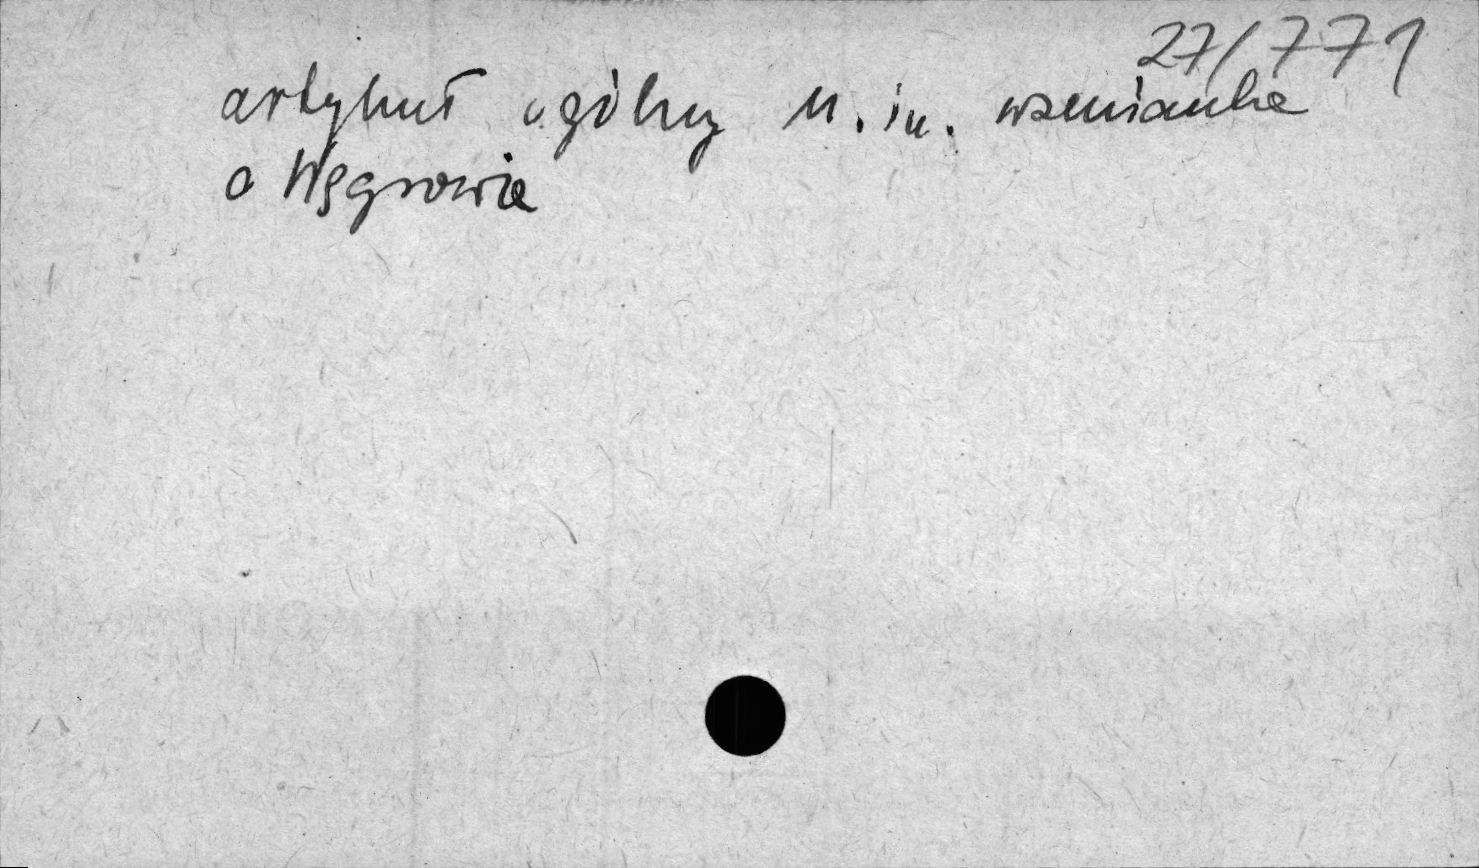 27/771
artykuł ogólny m.in. wzmianka
o Węgrowie